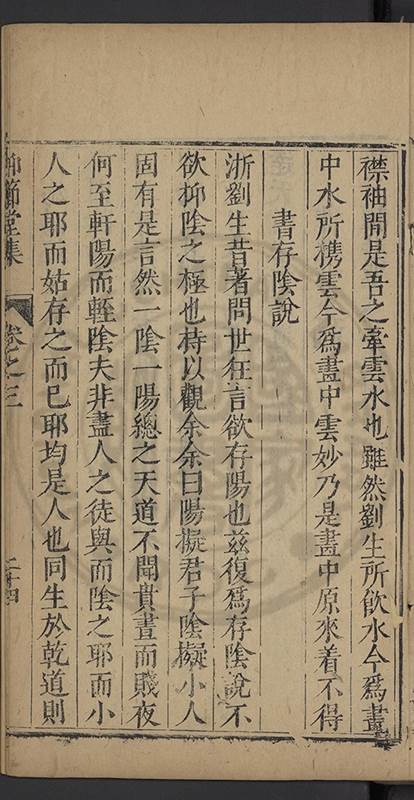 襟袖間是吾之牽雲水也雖然劉生所飲水今為畫
中水所携雲今為畫中雲妙乃是畫中原來着不得
書存陰說
浙劉生昔著問世狂言欲存陽也茲復為存陰說不
欲抑陰之極也持以觀余余曰陽擬君子陰擬小人
固有是言然一陰一陽總之天道不聞貴晝而賤夜
何至軒陽而輊陰夫非盡人之徒與而陰之耶而小
人之耶而姑存之而已耶均是人也同生於乾道則
仰節堂集
卷之三
二十四